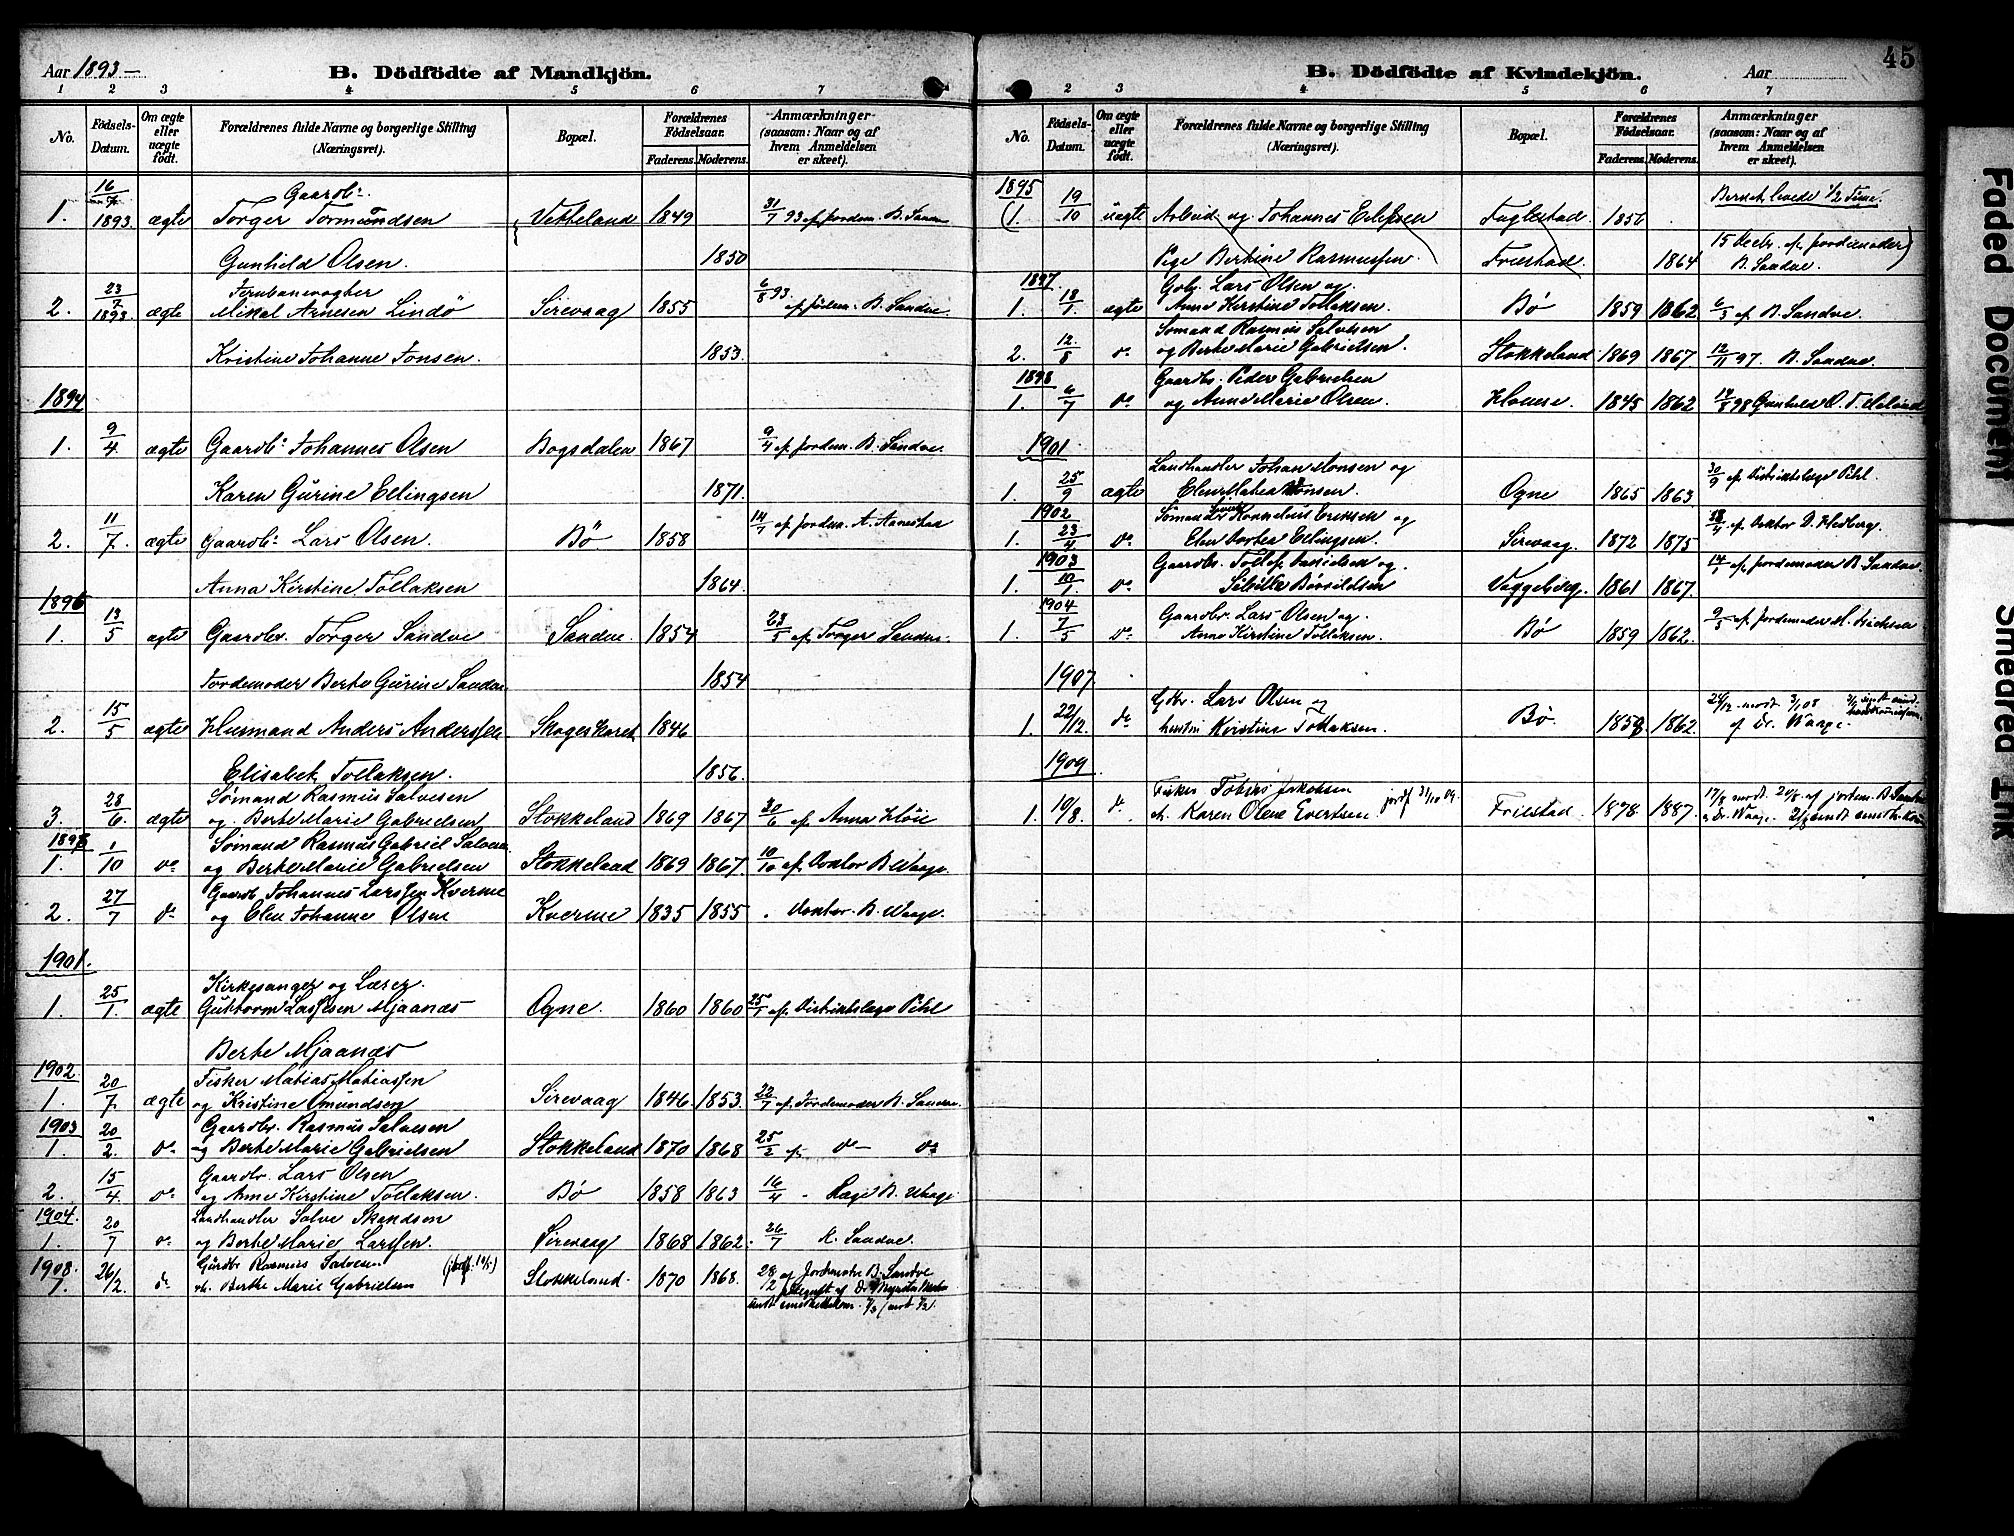 Aar 1893 —
B. Dödfödte af Mandkjön.
1 2 3 4 5 6 7
No.
Födsels-Datum.
Om ægte eller uægte födt.
Forældrenes fulde Navne og borgerlige Stilling (Næringsvei).
Bopæl.
Forældrenes Födselsaar.
Faderens. Moderens.
Anmærkninger (saasom: Naar og af hvem Anmeldelsen er skeet).
Gaardb:
1. 16/7 1893. ægte Torger Tormundsen Vetteland 1849 31/7 93 af jordem. B. Sandve
Gunhild Olsen. 1850
Jernbanevogter
2. 23/7 1893. ægte Mikal Arnesen Lindö Sirevaag 1855 6/8 93 af jordem. B. Sandve.
Kristine Johanne Jonsen. 1853.
1894
1. 9/4 ægte Gaardb: Johannes Olsen Bogsdalen 1867 9/4 af jordem. B. Sandve.
Karen Gurine Ellingsen 1871.
2. 11/7. ægte Gaardb: Lars Olsen. Bö 1858 14/7 af jordem. A. Aanestad
Anna Kirstine Tollaksen 1864.
1896
1. 13/5 ægte Gaardbr. Torger Sandve Sandve. 1854 23/5 af Torger Sandve.
Jordemoder Berte Gurine Sandve. 1854
2. 15/5 ægte Husmand Anders Anderssen Skogeskaret 1846
Elisabet Tollaksen. 1856.
Sömand Rasmus Salvesen
3. 28/6. ægte og Berte Marie Gabrielsen Stokkeland 1869 1867 30/6 af Anna Höie
1898 Sömand Rasmus Gabriel Salvesen
1. 1/10 do og Berte Marie Gabrielsen Stokkeland 1869 1867. 10/10 af Doktor B. Waage.
Gaardb. Johannes Larssen Kverme
2. 27/7 do og Elen Johanne Olsen Kverme 1835 1855 Doktor B. Waage.
1901.
Kirkesanger og Lærer
1. 25/1. ægte Guttorm Lassesen Mjaanæs Ogne. 1860 1860 25/1 af Distriktslæge Pihl
Berte Mjaanæs
1902 Fisker Matias Matiassen
1. 20/7. ægte og Kristine Omundsen Sirevaag 1846. 1853. 22/7 af Jordemoder B. Sandve.
1903 Gaardbr. Rasmus Salvesen
1. 20/2. do og Berte Marie Gabrielsen Stokkeland 1870 1868 25/2 af do — do
Gaardbr. Lars Olsen
2. 15/4. do og Anne Kirstine Tollaksen. Bö 1858 1863 16/4 - Læge B. Waage
1904. Landhandler Salve Skandsen
1. 20/7 do og Berte Marie Larssen. Sirevaag 1868 1862. 26/7 B. Sandve.
1908. Gardbr Rasmus Salvesen
1. 26/2. do Berthe Marie Gabrielsen Stokkeland. 1870 1868. 28/2 af Jordmoder B. Sandve

45
B. Dödfödte af Kvindekjön.
Aar
2 3 4 5 6 7
No.
Födsels-Datum.
Om ægte eller uægte födt.
Forældrenes fulde Navne og borgerlige Stilling (Næringsvei).
Bopæl.
Forældrenes Födselsaar.
Faderens. Moderens.
Anmærkninger (saasom: Naar og af hvem Anmeldelsen er skeet).
1895 levede 1/2 Time.
(1. 19/10 uægte Arbeid. ug. Johannes Eilefsen Fuglestad 1856
Pige Bertine Rasmussen Friestad. 1864 15 Decbr. af jordemoder B. Sandve.)
1897 Gbr. Lars Olsen og
1. 18/7. ægte Anne Kirstine Tollaksen. Bö 1859 1862. af B. Sandve.
Sömand Rasmus Salvesen
2. 12/8 do og Berte Marie Gabrielsen. Stokkeland 1869 1867 12/11 97. B. Sandve.
1898 Gaardbr. Peder Gabrielsen
1. 6/7 do og Anne Marie Olsen. 1845 1862
1901
Landhandler Johan Monsen og
1. 25/9 ægte Elen Matea Jonsen. Ogne 1865 1863. 30/9 af Distriktslæge Pihl.
1902 Sömand Kornelius Eriksen og
1. 23/4 do Elen Dortea Ellingsen. Sirevaag. 1872 1875 af Doktor D. Hedberg.
1903 Gaardbr. Tollef Danielsen og.
1. 10/1. do Vaggebjerg. 1861 1867. af jordemoder B. Sandve.
1904 Gaardbr. Lars Olsen og.
1. 7/5 do Anne Kirstine Tollaksen. Bö 1859 1862. 9/5 af jordemoder
1907.
Gbr. Lars Olsen og
1. 22/12. do hustru Kristine Tollaksen. Bö. 1859. 1862. 24/12 modt 3/1 08 af Dr. Waage.
1909.
Fisker Tobias Jakobsen
1. 10/8. do Karen Olene Evertsen Friestad. 1878. 1887. 17/8 modt. 20/8 af jordem. B. Sandve
Dr. Waage.

Faded Document
Smeared Ink